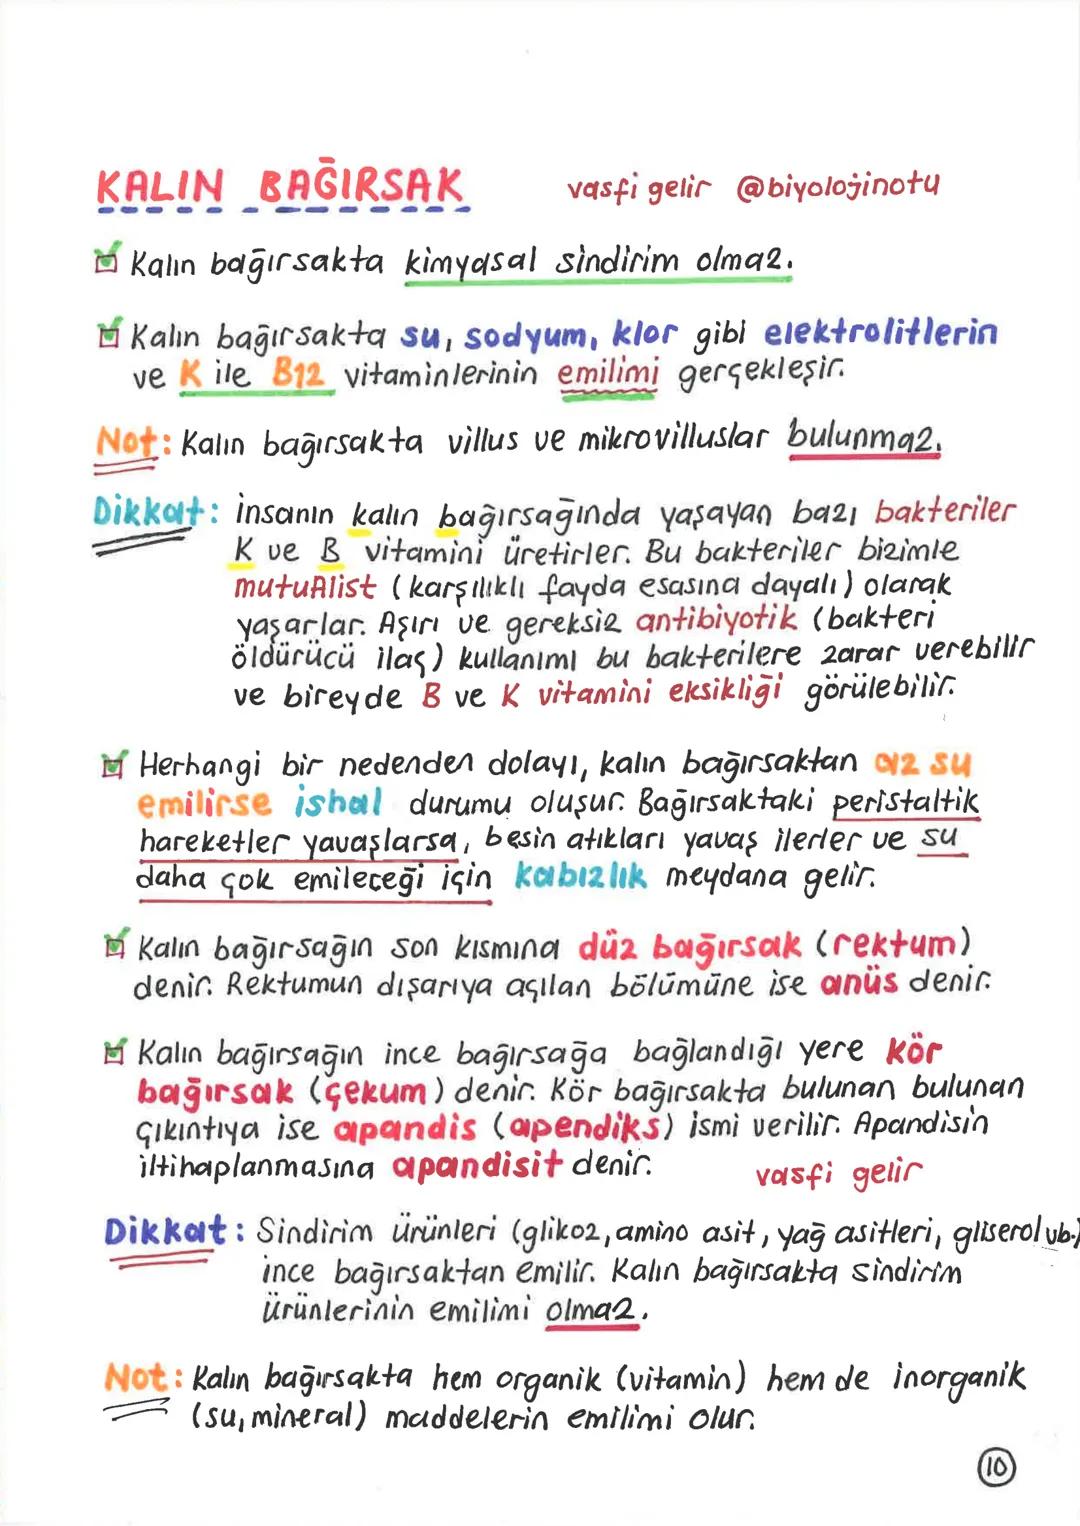 KALIN BAĞIRSAK
vasfi gelir @biyolojinotu
Kalın bağırsakta kimyasal sindirim olmaz.
Kalın bağırsakta su, sodyum, klor gibi elektrolitlerin
ve K ile B12 vitaminlerinin emilimi gerçekleşir.
Not: Kalın bağırsakta villus ve mikrovilluslar bulunmaz.
Dikkat: İnsanın kalın bağırsağında yaşayan bazı bakteriler
K ve B vitamini üretirler. Bu bakteriler bizimle
mutuAlist (karşılıklı fayda esasına dayalı) olarak
yaşarlar. Aşırı ve gereksiz antibiyotik (bakteri
öldürücü ilaç) kullanımı bu bakterilere zarar verebilir
ve bireyde B ve K vitamini eksikliği görülebilir.
Herhangi bir nedenden dolayı, kalın bağırsaktan az su
emilirse ishal durumu oluşur. Bağırsaktaki peristaltik
hareketler yavaşlarsa, besin atıkları yavaş ilerler ve su
daha çok emileceği için kabızlık meydana gelir.
Kalın bağırsağın son kısmına düz bağırsak (rektum)
denir. Rektumun dışarıya açılan bölümüne ise anüs denir.
Kalın bağırsağın ince bağırsağa bağlandığı yere kör
bağırsak (çekum) denir. Kör bağırsakta bulunan bulunan
çıkıntıya ise apandis (apendiks) ismi verilir. Apandisin
iltihaplanmasına apandisit denir.
vasfi gelir
Dikkat: Sindirim ürünleri (glikoz, amino asit, yağ asitleri, gliserol vb.)
ince bağırsaktan emilir. Kalın bağırsakta sindirim
ürünlerinin emilimi olmaz.
Not: Kalın bağırsakta hem organik (vitamin) hem de inorganik
(su, mineral) maddelerin emilimi olur.
10